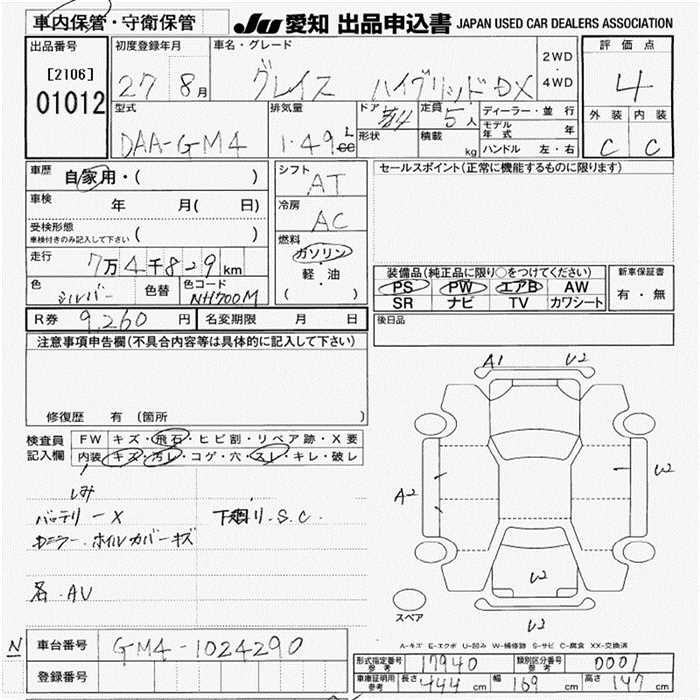 車内保管・守衛保管
JU 愛知 出品申込書 JAPAN USED CAR DEALERS ASSOCIATION
出品番号
[2106]
01012
初度登録年月
27 8月
車名・グレード
グレイス ハイブリッドDX
2WD
・
4WD
評価点
4
型式
DAA-GM4
排気量
1.49 L
cc
ドア
形状
定員
5人
積載
kg
ディーラー・並行
モデル年式 年
ハンドル 左・右
外装 内装
C C
車歴
自家用・( )
車検
年 月( 日)
受検形態
車検付きのみ記入して下さい ( )
走行
7万4千829km
色
シルバー
色替
色コード
NH700M
シフト
AT
冷房
AC
燃料
ガソリン
軽・油
( )
セールスポイント(正常に機能するものに限ります)
装備品(純正品に限り○をつけてください)
PS PW エアB AW
SR ナビ TV カワシート
新車保証書
有・無
R券 9,260 円
名変期限 月 日
後日品
注意事項申告欄(不具合内容等は具体的に記入して下さい)
修復歴 有 (箇所 )
検査員
記入欄
FW キズ・飛石・ヒビ割・リペア跡・X要
内装 キズ・汚レ・コゲ・穴・スレ・キレ・破レ
しみ
バッテリーX
下廻り.S.C.
カニラー.ホイルカバーキズ
各.AU
A1 U2
A2
U2
U2
U3
スペア
A-キズ E-エクボ U-凹み W-補修跡 S-サビ C-腐食 XX-交換済
N
車台番号 GM4-1024290
登録番号
形式指定番号
参考
17940
類別区分番号
参考
0001
車庫証明用
参考
長さ 444 cm
幅 169 cm
高さ 147 cm